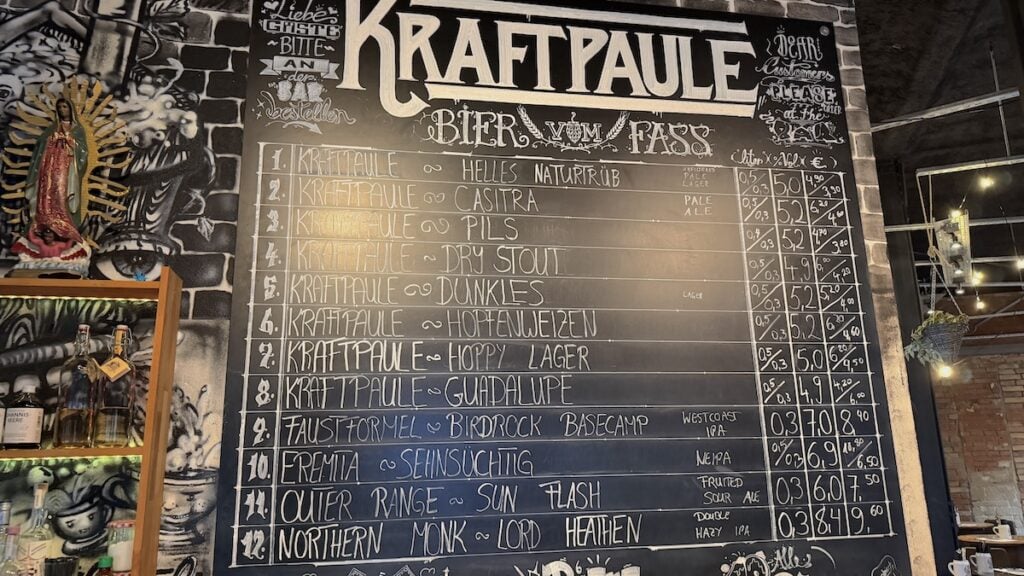 Liebe
GÄSTE
BITTE
AN
der
BAR
bestellen
KRAFTPAULE
DEAR
Customers
PLEASE
at the
BIER VOM FASS
1. KRAFTPAULE ~ HELLES NATURTRÜB LAGER 0,5/0,3 5,0
2. KRAFTPAULE ~ CASITRA PALE ALE 0,5/0,3 5,2
3. KRAFTPAULE ~ PILS 0,5/0,3 5,2
4. KRAFTPAULE ~ DRY STOUT 0,5/0,3 4,9
5. KRAFTPAULE ~ DUNKLES LAGER 0,5/0,3 5,2
6. KRAFTPAULE ~ HOPFENWEIZEN 0,5/0,3 5,2
7. KRAFTPAULE ~ HOPPY LAGER 0,5/0,3 5,0
8. KRAFTPAULE ~ GUADALUPE 0,5/0,3 4,9
9. FAUSTFORMEL ~ BIRDROCK BASECAMP WESTCOAST IPA 0,3 7,0 8,40
10. EREMITA ~ SEHNSÜCHTIG NEIPA 0,5/0,3 6,9
11. OUTER RANGE ~ SUN FLASH FRUITED SOUR ALE 0,3 6,0 7,50
12. NORTHERN MONK ~ LORD HEATHEN DOUBLE HAZY IPA 0,3 8,4 9,60
Alle